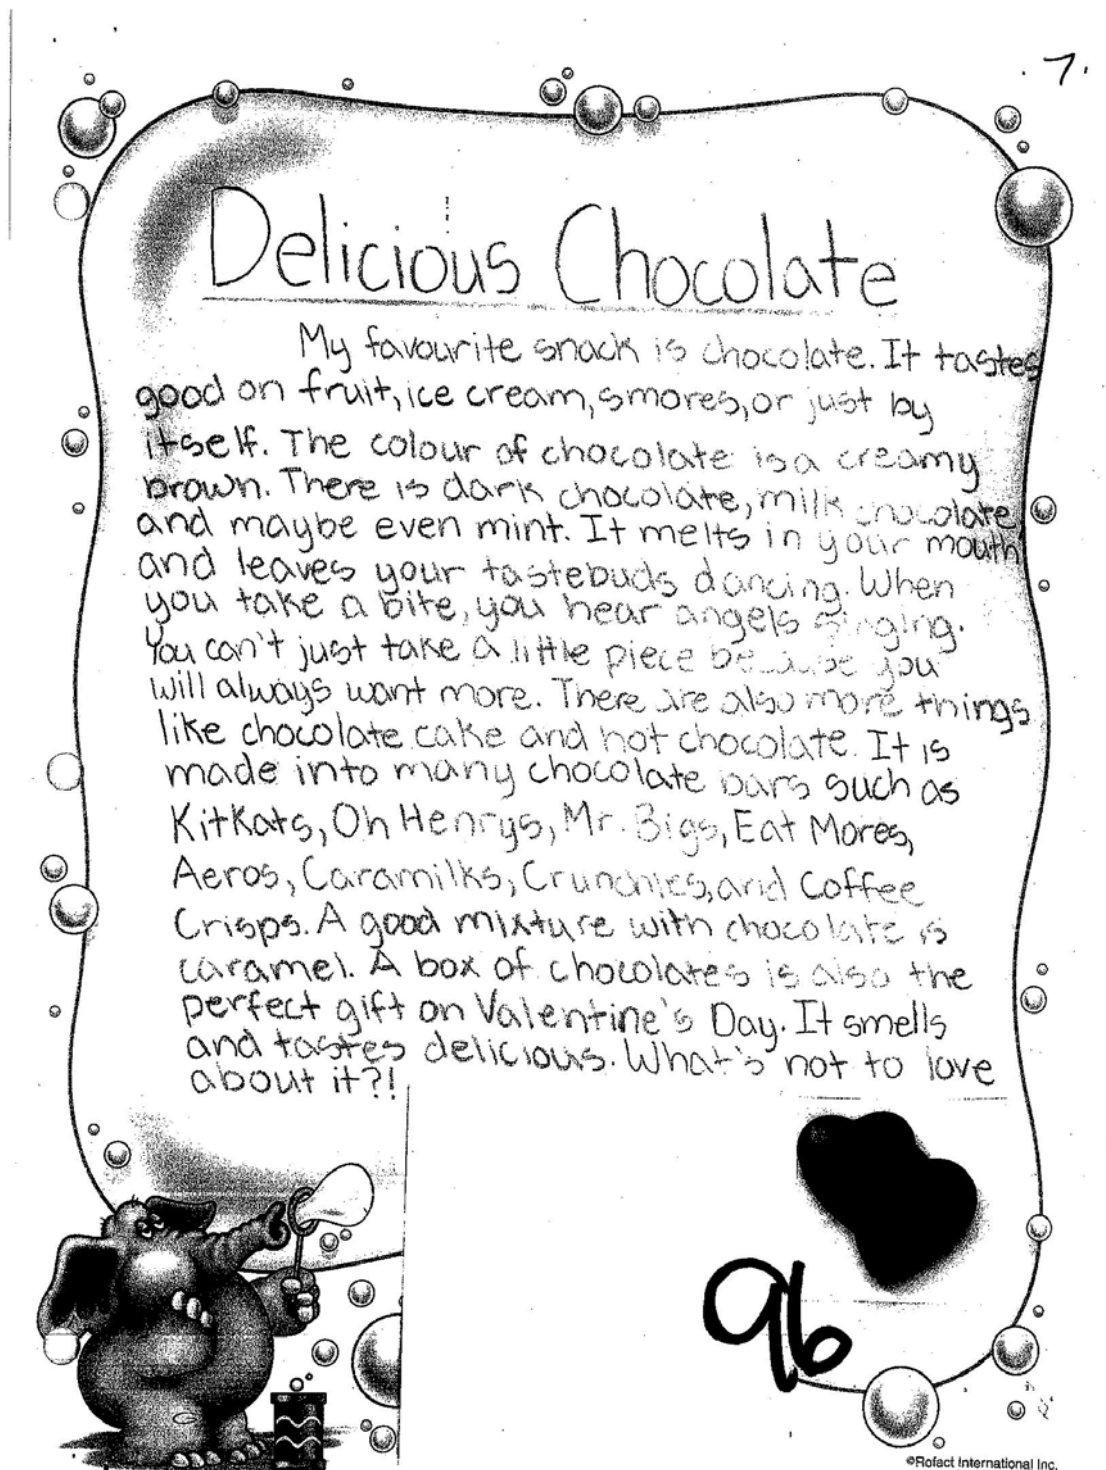 7.
Delicious Chocolate
My favourite snack is chocolate. It tastes
good on fruit, ice cream, smores, or just by
itself. The colour of chocolate is a creamy
brown. There is dark chocolate, milk chocolate
and maybe even mint. It melts in your mouth
and leaves your tastebuds dancing. When
you take a bite, you hear angels singing.
You can't just take a little piece because you
will always want more. There are also more things
like chocolate cake and hot chocolate. It is
made into many chocolate bars such as
KitKats, Oh Henrys, Mr. Bigs, Eat Mores,
Aeros, Caramilks, Crunchies, and Coffee
Crisps. A good mixture with chocolate is
caramel. A box of chocolates is also the
perfect gift on Valentine's Day. It smells
and tastes delicious. What's not to love
about it?!
96
©Rofact International Inc.